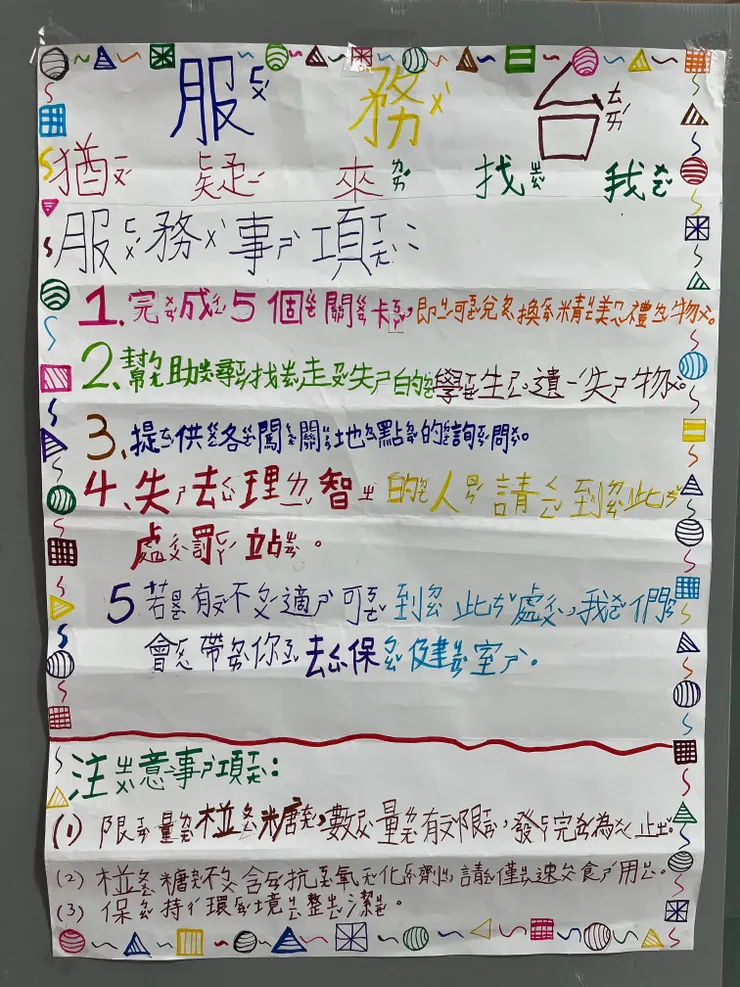 服ㄈㄨˊ務ㄨˋ台ㄊㄞˊ
猶ㄧㄡˊ疑ㄧˊ來ㄌㄞˊ找ㄓㄠˇ我ㄨㄛˇ
服ㄈㄨˊ務ㄨˋ事ㄕˋ項ㄒㄧㄤˋ:
1.完ㄨㄢˊ成ㄔㄥˊ5個ㄍㄜˋ關ㄍㄨㄢ卡ㄎㄚˇ,即ㄐㄧˊ可ㄎㄜˇ兌ㄉㄨㄟˋ換ㄏㄨㄢˋ精ㄐㄧㄥ美ㄇㄟˇ禮ㄌㄧˇ物ㄨˋ。
2.幫ㄅㄤ助ㄓㄨˋ尋ㄒㄩㄣˊ找ㄓㄠˇ走ㄗㄡˇ失ㄕ的ㄉㄜ˙學ㄒㄩㄝˊ生ㄕㄥ遺ㄧˊ失ㄕ物ㄨˋ。
3.提ㄊㄧˊ供ㄍㄨㄥ各ㄍㄜˋ闖ㄔㄨㄤˇ關ㄍㄨㄢ地ㄉㄧˋ點ㄉㄧㄢˇ的ㄉㄜ˙詢ㄒㄩㄣˊ問ㄨㄣˋ。
4.失ㄕ去ㄑㄩˋ理ㄌㄧˇ智ㄓˋ的ㄉㄜ˙人ㄖㄣˊ請ㄑㄧㄥˇ到ㄉㄠˋ此ㄘˇ
處ㄔㄨˋ罰ㄈㄚˊ站ㄓㄢˋ。
5若ㄖㄨㄛˋ有ㄧㄡˇ不ㄅㄨˊ適ㄕˋ可ㄎㄜˇ到ㄉㄠˋ此ㄘˇ處ㄔㄨˋ,我ㄨㄛˇ們ㄇㄣ˙
會ㄏㄨㄟˋ帶ㄉㄞˋ你ㄋㄧˇ去ㄑㄩˋ保ㄅㄠˇ健ㄐㄧㄢˋ室ㄕˋ。
注ㄓㄨˋ意ㄧˋ事ㄕˋ項ㄒㄧㄤˋ:
(1) 限ㄒㄧㄢˋ量ㄌㄧㄤˋ椪ㄆㄥˋ糖ㄊㄤˊ,數ㄕㄨˋ量ㄌㄧㄤˋ有ㄧㄡˇ限ㄒㄧㄢˋ,發ㄈㄚ完ㄨㄢˊ為ㄨㄟˊ止ㄓˇ。
(2) 椪ㄆㄥˋ糖ㄊㄤˊ不ㄅㄨˋ含ㄏㄢˊ抗ㄎㄤˋ氧ㄧㄤˇ化ㄏㄨㄚˋ劑ㄐㄧˋ,請ㄑㄧㄥˇ僅ㄐㄧㄣˇ速ㄙㄨˋ食ㄕˊ用ㄩㄥˋ。
(3) 保ㄅㄠˇ持ㄔˊ環ㄏㄨㄢˊ境ㄐㄧㄥˋ整ㄓㄥˇ潔ㄐㄧㄝˊ。